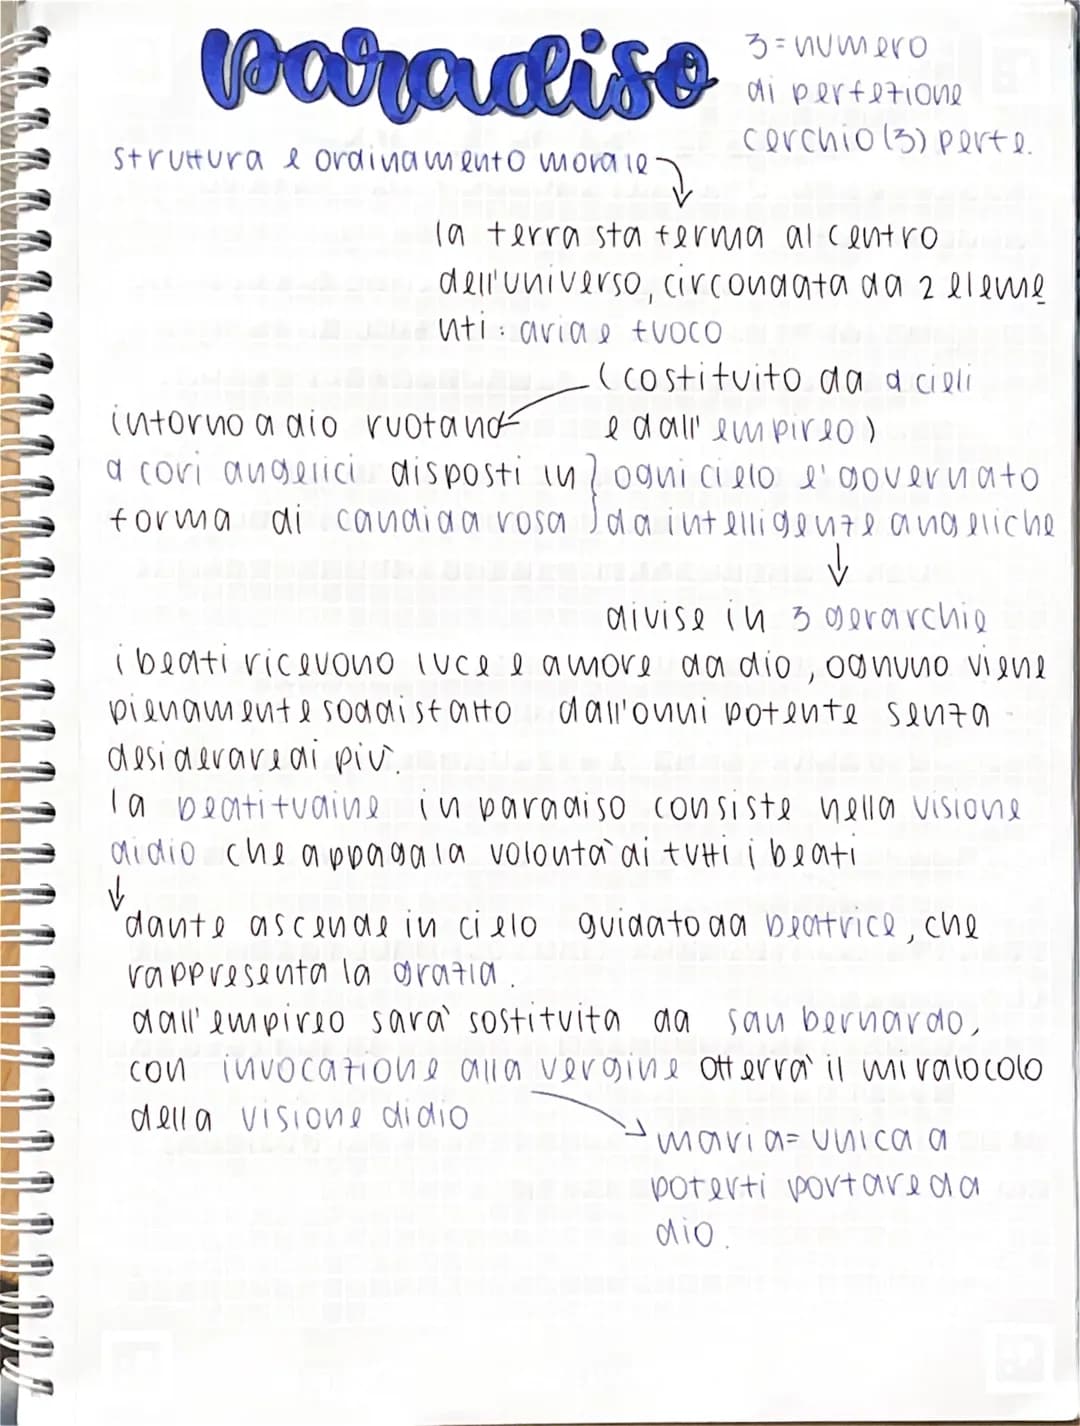 paradiso
3=numero
di perfezione
cerchio (3) perfe.
struttura e ordinamento morale
la terra sta ferma al centro
dell'universo, circondata da 2 eleme
nti: aria e fuoco
(costituito da 9 cieli
e dall'empireo)
intorno a dio ruotano
9 cori angelici disposti in
forma di candida rosa
ogni cielo è governato
da intelligenze angeliche
divise in 3 gerarchie
i beati ricevono luce e amore da dio, ognuno viene
pienamente soddisfatto dall'onni potente senza
desiderare di più.
la beatitudine in paradiso consiste nella visione
di dio che appaga la volontà di tutti i beati
dante ascende in cielo guidato da beatrice, che
rappresenta la grazia.
dall'empireo sarà sostituita da san bernardo,
con invocazione alla vergine otterrà il miralocolo
della visione di dio
maria= unica a
poterti portare da
dio.